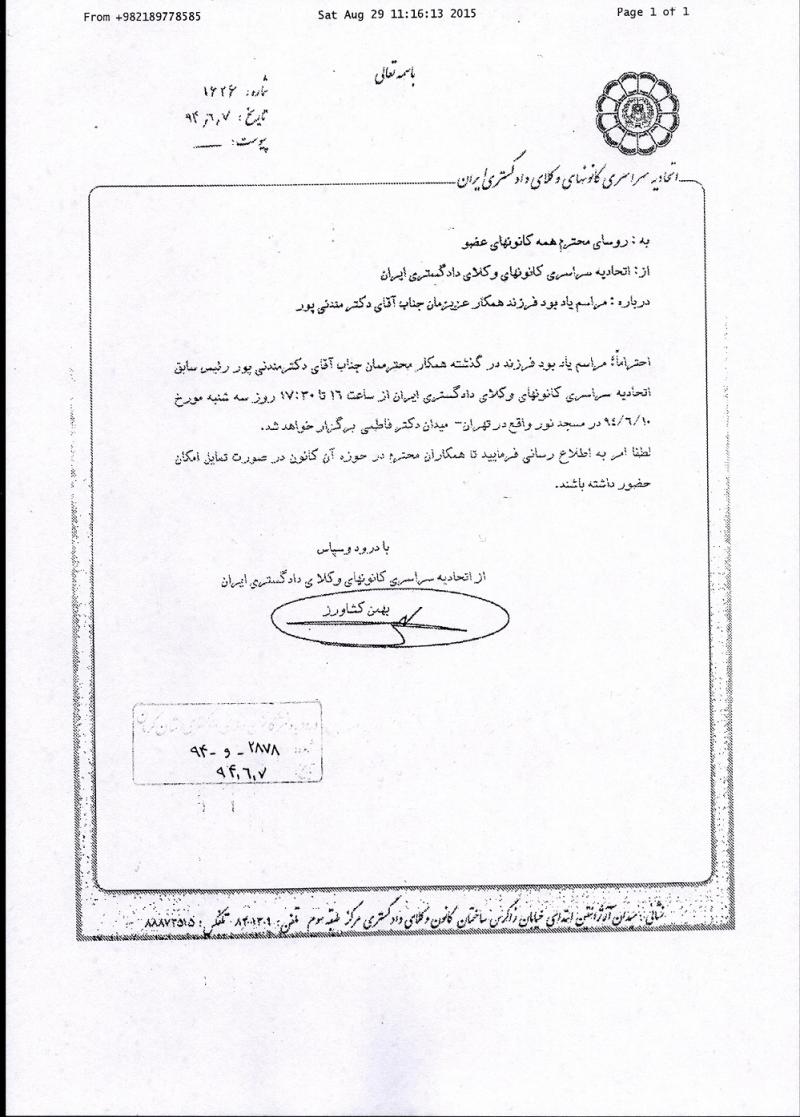 From +982189778585 Sat Aug 29 11:16:13 2015 Page 1 of 1
باسمه تعالی
شماره: ۱۶۲۶
تاریخ: ۹۴,۶,۷
پیوست: ــــ
اتحادیه سراسری کانونهای وکلای دادگستری ایران
به : روسای محترم همه کانونهای عضو
از: اتحادیه سراسری کانونهای وکلای دادگستری ایران
درباره : مراسم یاد بود فرزند همکار عزیزمان جناب آقای دکتر مندنی پور
احتراماً؛ مراسم یاد بود فرزند در گذشته همکار محترممان جناب آقای دکترمندنی پور رئیس سابق
اتحادیه سراسری کانونهای وکلای دادگستری ایران از ساعت ۱۶ تا ۱۷:۳۰ روز سه شنبه مورخ
۹٤/۶/۱۰ در مسجد نور واقع در تهران- میدان دکتر فاطمی برگزار خواهد شد.
لطفا امر به اطلاع رسانی فرمایید تا همکاران محترم در حوزه آن کانون در صورت تمایل امکان
حضور داشته باشند.
با درود و سپاس
از اتحادیه سراسری کانونهای وکلا ی دادگستری ایران
بهمن کشاورز
۲۸۷۸ - و - ۹۴
۹۴,۶,۷
نشانی: میدان آرژانتین ابتدای خیابان زاگرس ساختمان کانون وکلای دادگستری مرکز طبقه سوم تلفن: ۸۴۰۱۳۰۹ تلفکس: ۸۸۸۷۳۵۱۵